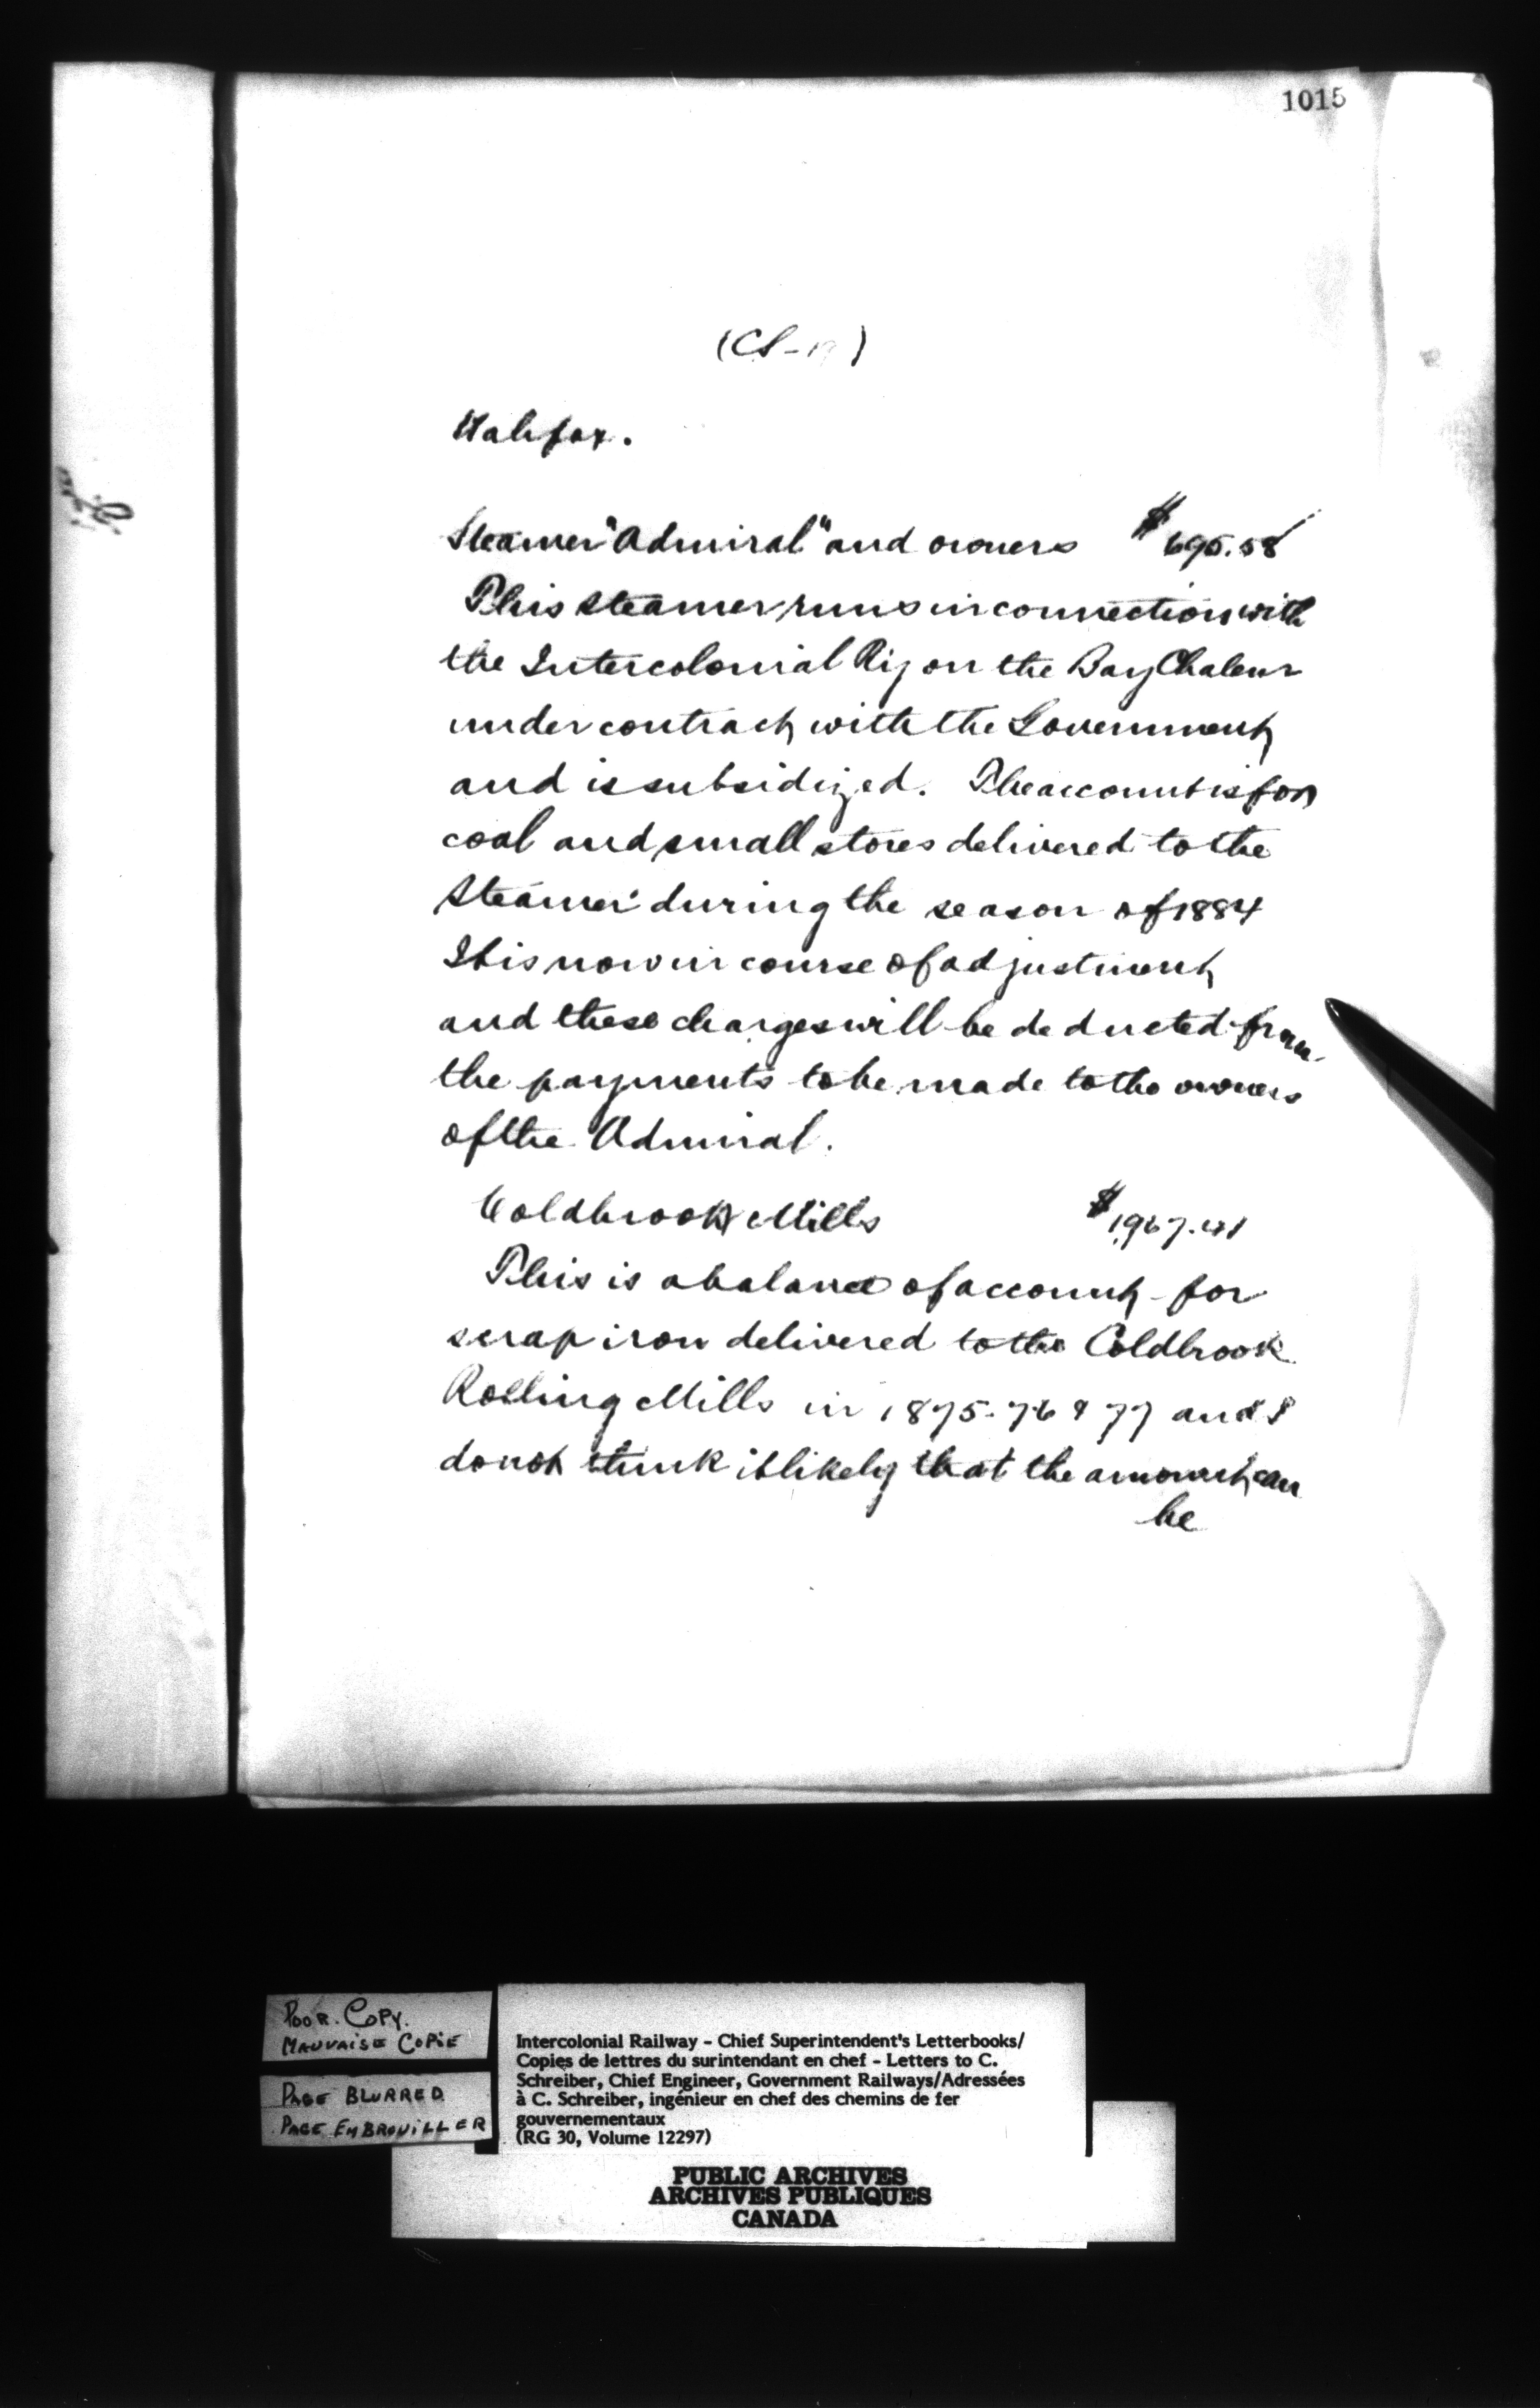 1015
(CS-19)
Halifax.
Steamer "Admiral" and owners $695.58
This steamer runs in connection with
the Intercolonial Ry on the Bay Chaleur
under contract with the Government
and is subsidized. The account is for
coal and small stores delivered to the
Steamer during the season of 1884
It is now in course of adjustment
and these charges will be deducted from
the payments to be made to the owners
of the Admiral.
Coldbrook Mills $1,967.41
This is a balance of account for
scrap iron delivered to the Coldbrook
Rolling Mills in 1875-76 & 77 and I
do not think it likely that the amount can
be
POOR. COPY.
MAUVAISE COPIE
PAGE BLURRED
PAGE EMBROUILLER
Intercolonial Railway - Chief Superintendent's Letterbooks/
Copies de lettres du surintendant en chef - Letters to C.
Schreiber, Chief Engineer, Government Railways/Adressées
à C. Schreiber, ingénieur en chef des chemins de fer
gouvernementaux
(RG 30, Volume 12297)
PUBLIC ARCHIVES
ARCHIVES PUBLIQUES
CANADA